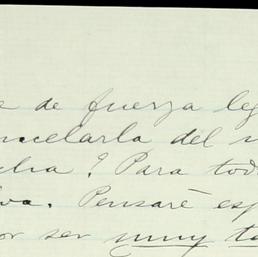 de fuerza leg
ncelarla del
cha? Para tod
va. Pensaré esp
or ser muy ta